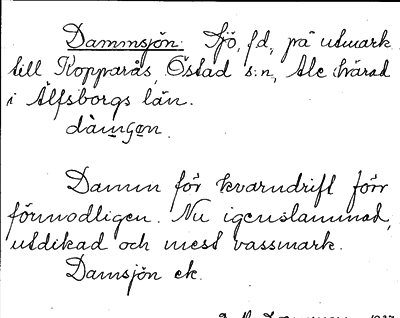 Dammsjön. Sjö, f.d., på utmark
till Kopparås, Östad s:n, Ale härad
i Älfsborgs län.
dàmgen.
Damm för kvarndrift förr
förmodligen. Nu igenslammad,
utdikad och mest vassmark.
Damsjön ek.